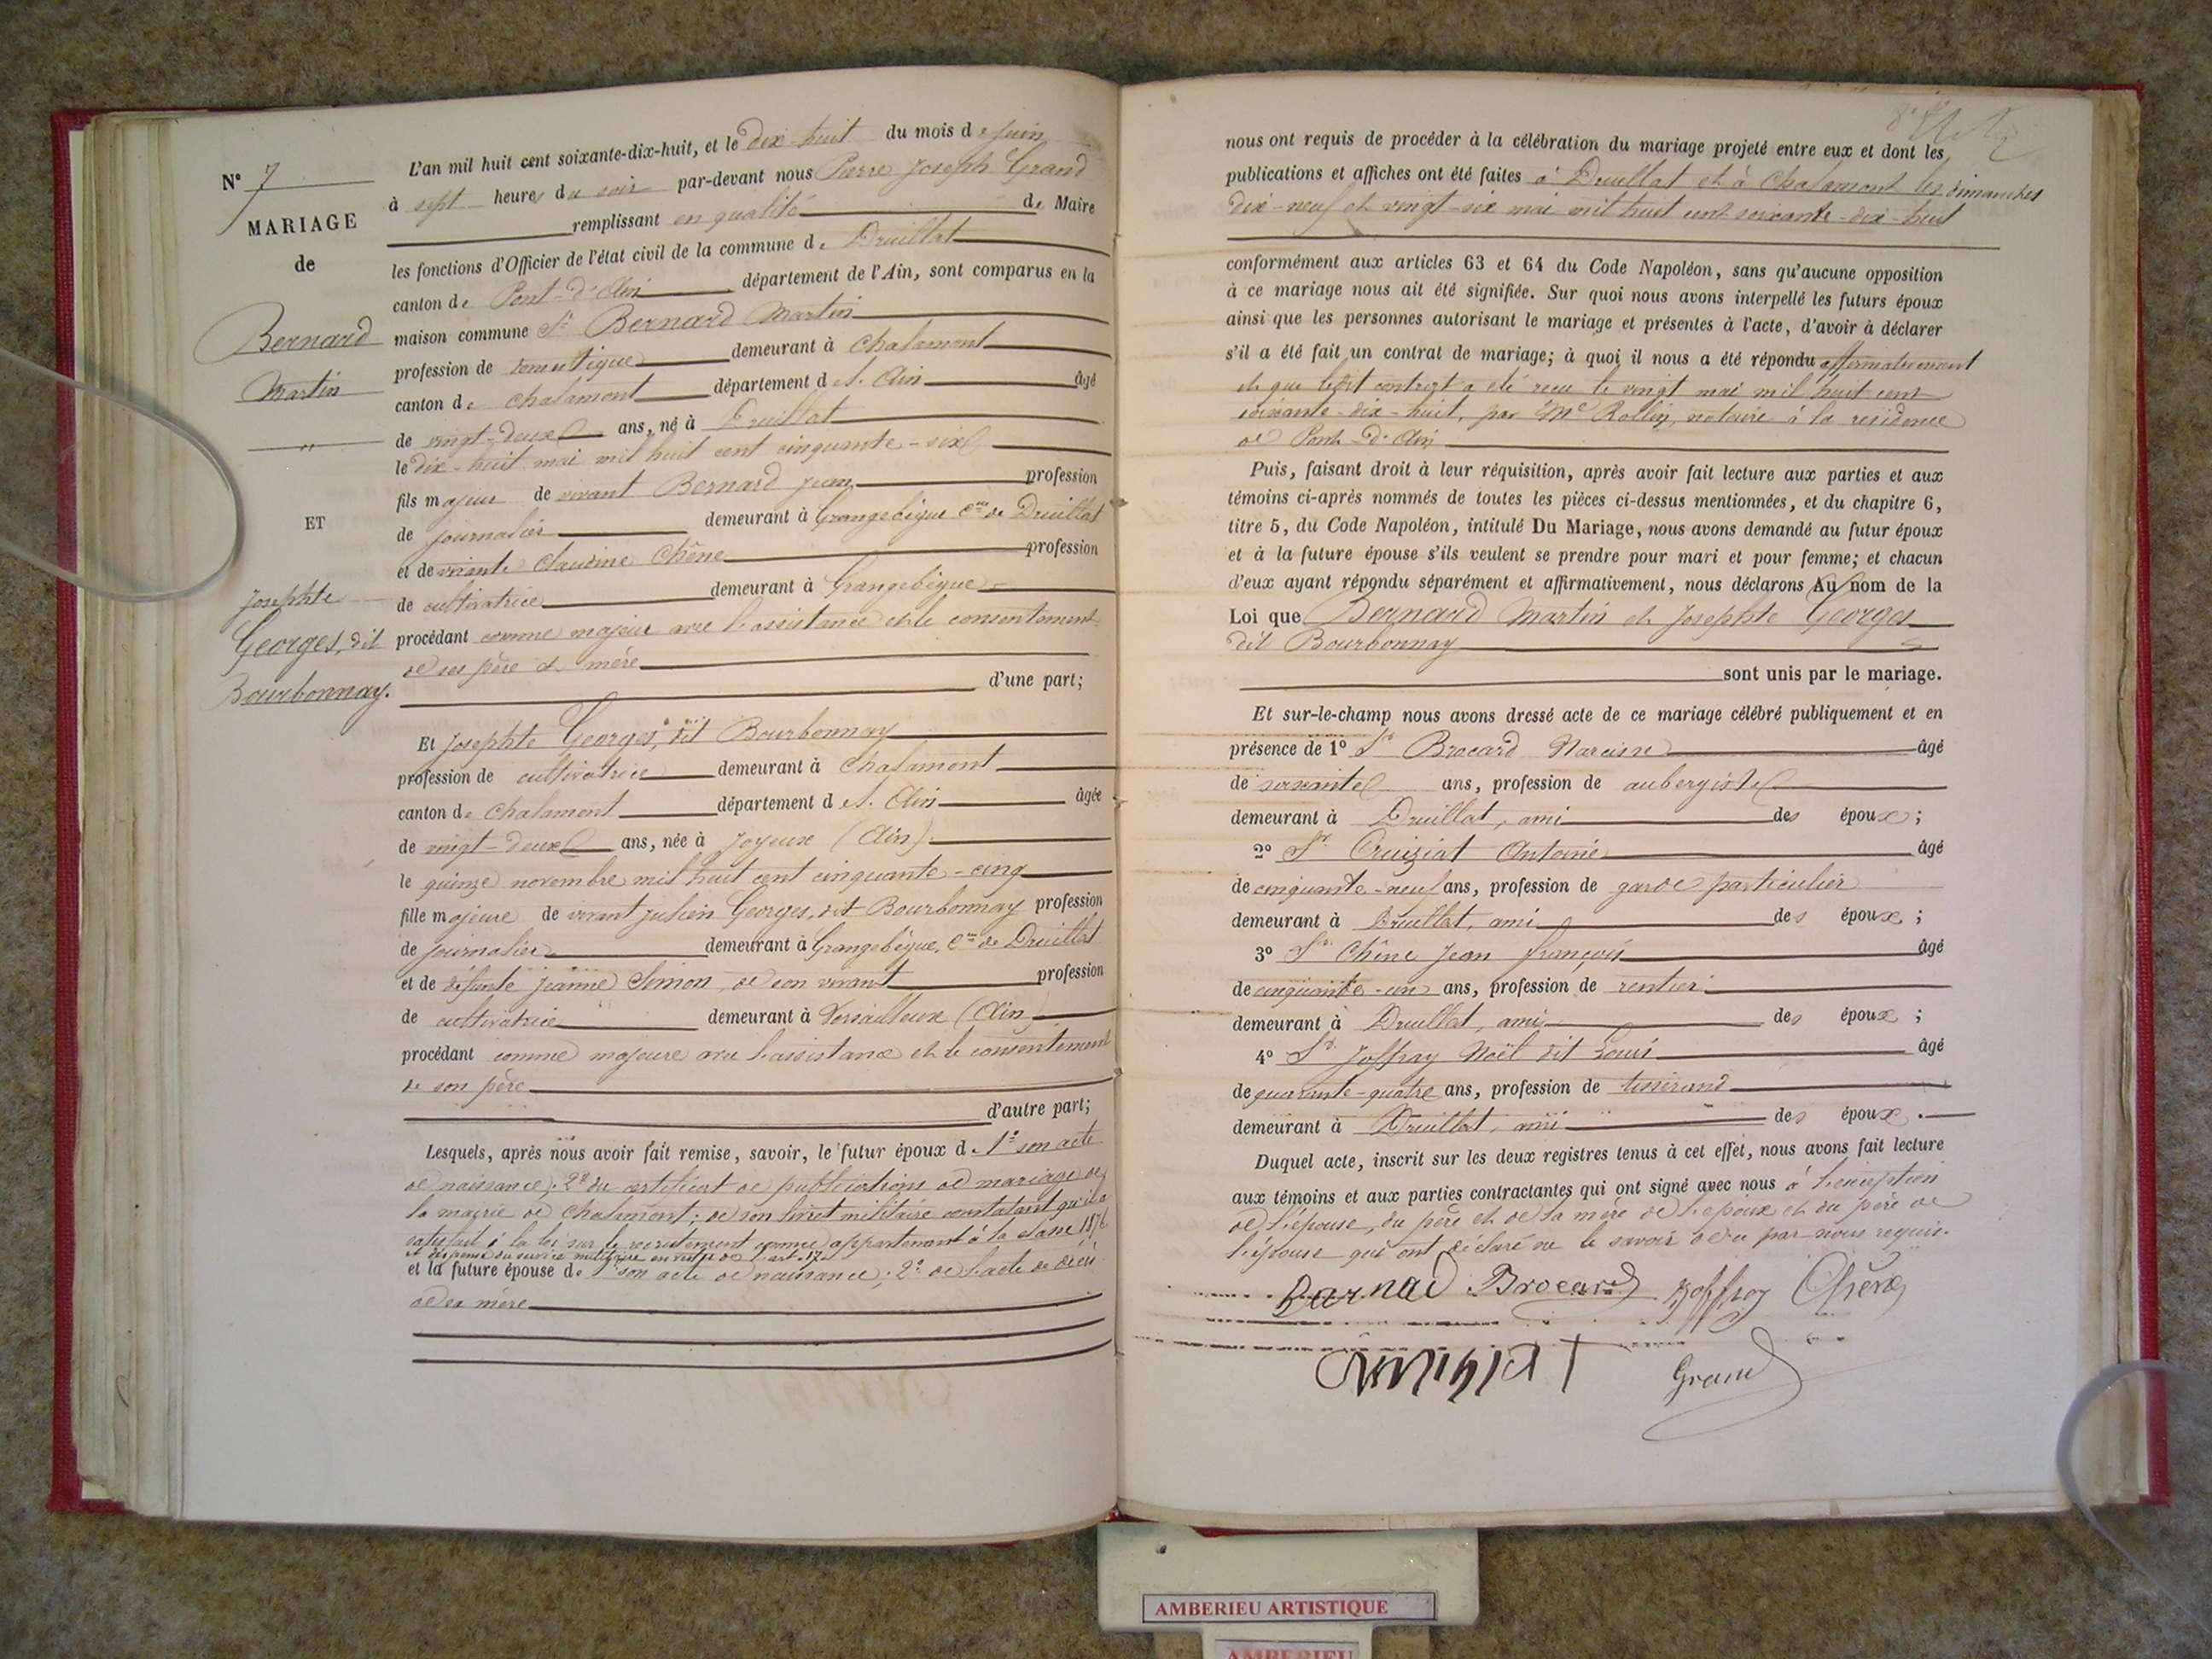 N° 7
MARIAGE
de
Bernard
Martin
"
ET
Josephte
Georges, dit
Bourbonnay.
L'an mil huit cent soixante-dix-huit, et le dix-huit du mois de juin
à sept heures du soir par-devant nous Pierre Joseph Grand
remplissant en qualité de Maire
les fonctions d'Officier de l'état civil de la commune de Druillat
canton de Pont-d'Ain département de l'Ain, sont comparus en la
maison commune Sr Bernard Martin
profession de domestique demeurant à Chalamont
canton de Chalamont département de l'Ain âgé
de vingt-deux ans, né à Druillat
le dix-huit mai mil huit cent cinquante-six
fils majeur de vivant Bernard Jean profession
de journalier demeurant à Grangebègue Cne de Druillat
et de vivante Claudine Chêne profession
de cultivatrice demeurant à Grangebègue
procédant comme majeur avec l'assistance et le consentement
de ses père et mère
d'une part;
Et Josephte Georges, dit Bourbonnay
profession de cultivatrice demeurant à Chalamont
canton de Chalamont département de l'Ain âgée
de vingt-deux ans, née à Joyeux (Ain)
le quinze novembre mil huit cent cinquante-cinq
fille majeure de vivant Julien Georges, dit Bourbonnay profession
de journalier demeurant à Grangebègue, Cne de Druillat
et de défunte Jeanne Simon, de son vivant profession
de cultivatrice demeurant à Versailleux (Ain)
procédant comme majeure avec l'assistance et le consentement
de son père
d'autre part;
Lesquels, après nous avoir fait remise, savoir, le futur époux de 1° son acte
de naissance; 2° du certificat de publications de mariage de
la mairie de Chalamont; de son livret militaire constatant qu'il a
satisfait à la loi sur le recrutement comme appartenant à la classe 1876
et dispensé du service militaire en vertu de l'art. 17
et la future épouse de 1° son acte de naissance; 2° de l'acte de décès
de sa mère
nous ont requis de procéder à la célébration du mariage projeté entre eux et dont les
publications et affiches ont été faites à Druillat et à Chalamont les dimanches
dix-neuf et vingt-six mai mil huit cent soixante-dix-huit
conformément aux articles 63 et 64 du Code Napoléon, sans qu'aucune opposition
à ce mariage nous ait été signifiée. Sur quoi nous avons interpellé les futurs époux
ainsi que les personnes autorisant le mariage et présentes à l'acte, d'avoir à déclarer
s'il a été fait un contrat de mariage; à quoi il nous a été répondu affirmativement
et que ledit contrat a été reçu le vingt mai mil huit cent
soixante-dix-huit, par Me Rollin, notaire à la résidence
de Pont-d'Ain
Puis, faisant droit à leur réquisition, après avoir fait lecture aux parties et aux
témoins ci-après nommés de toutes les pièces ci-dessus mentionnées, et du chapitre 6,
titre 5, du Code Napoléon, intitulé Du Mariage, nous avons demandé au futur époux
et à la future épouse s'ils veulent se prendre pour mari et pour femme; et chacun
d'eux ayant répondu séparément et affirmativement, nous déclarons Au nom de la
Loi que Bernard Martin et Josephte Georges
dit Bourbonnay
sont unis par le mariage.
Et sur-le-champ nous avons dressé acte de ce mariage célébré publiquement et en
présence de 1° Sr Brocard Narcisse âgé
de soixante ans, profession de aubergiste
demeurant à Druillat, ami des époux;
2° Sr Cruiziat Antoine âgé
de cinquante-neuf ans, profession de garde particulier
demeurant à Druillat, ami des époux;
3° Sr Chêne Jean François âgé
de cinquante-un ans, profession de rentier
demeurant à Druillat, ami des époux;
4° Sr Joffray Noël dit Louis âgé
de quarante-quatre ans, profession de tisserand
demeurant à Druillat, ami des époux.
Duquel acte, inscrit sur les deux registres tenus à cet effet, nous avons fait lecture
aux témoins et aux parties contractantes qui ont signé avec nous à l'exception
de l'épouse, du père et de la mère de l'époux et du père de
l'épouse qui ont déclaré ne le savoir de ce par nous requis.
Barnad Brocard Joffray Chêne
Cruiziat Grand
AMBERIEU ARTISTIQUE
AMBERIEU